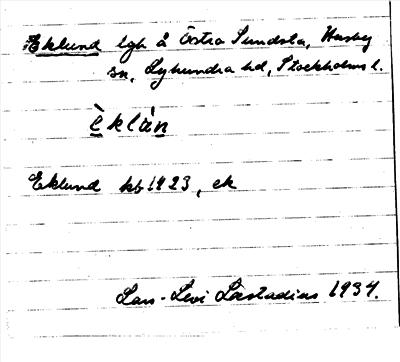 Eklund lgh å Östra Sundsta, Husby
sn, Lyhundra hd, Stockholms l.
èklàn
Eklund kb 1923, ek
Lars-Levi Læstadius 1934.